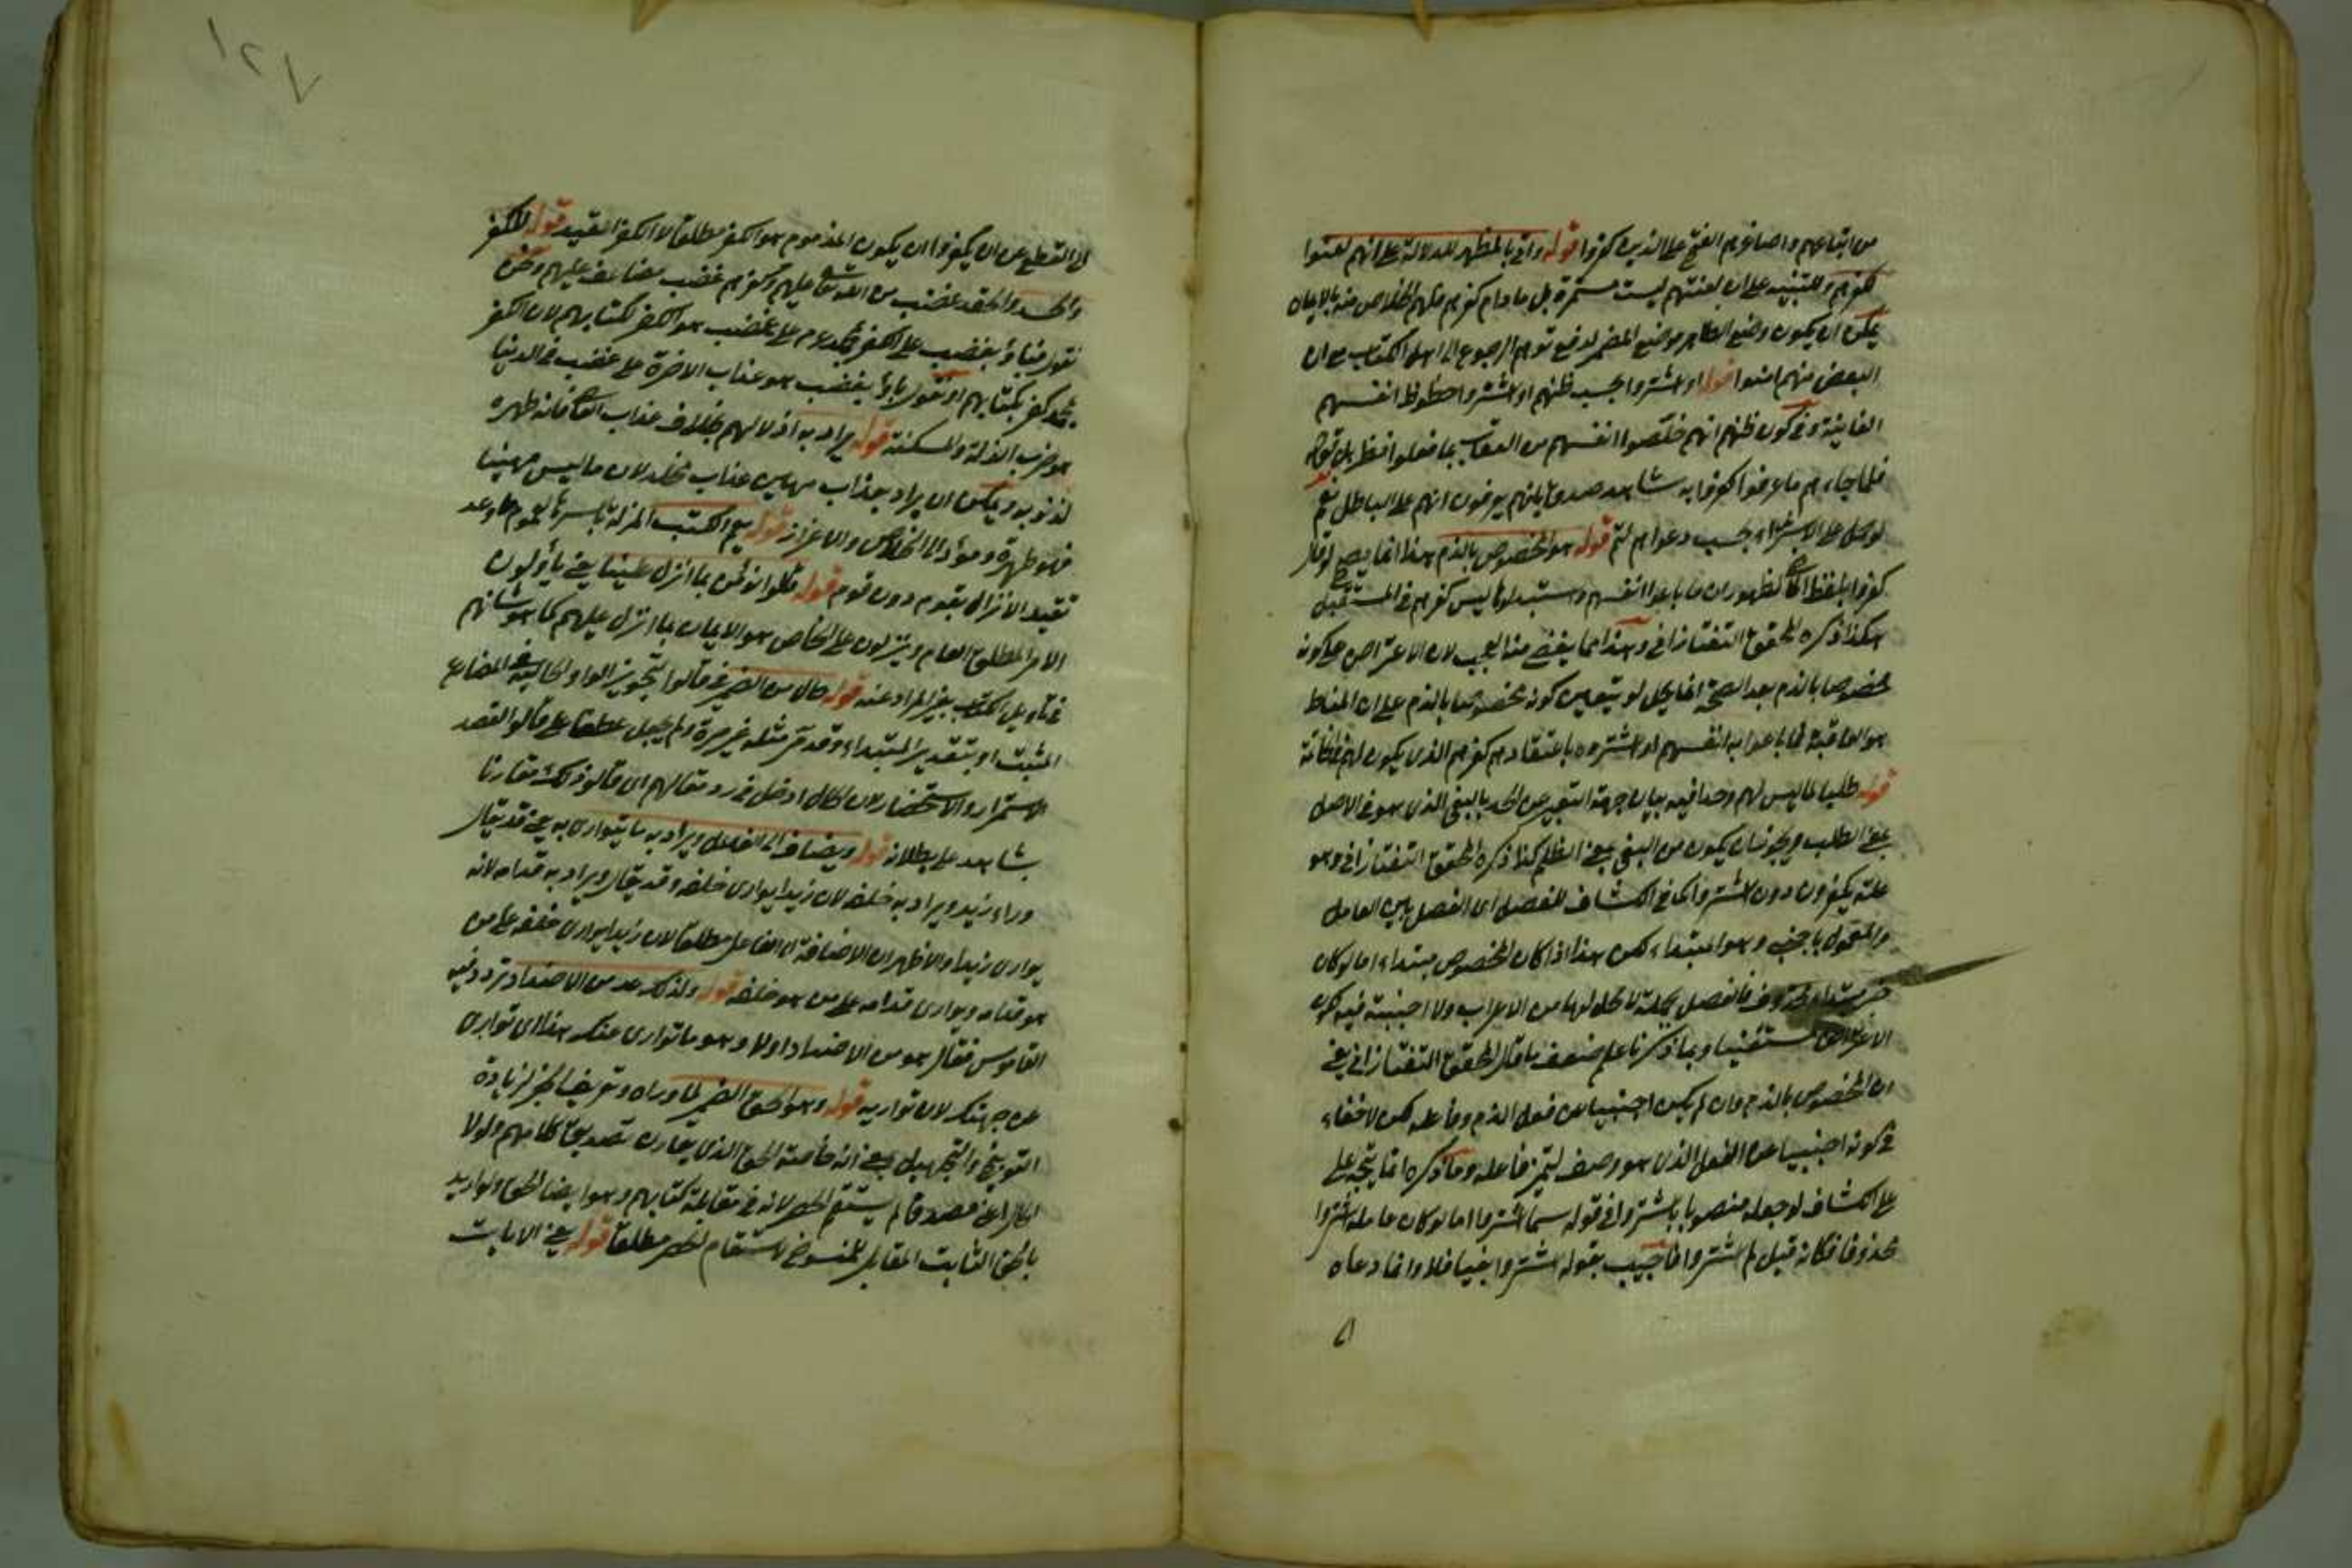 من اتباعهم واصاغرهم الفتح على الذين كفروا قوله واتى بالمظهر للدلالة على انهم لعنوا
لكفرهم وللتنبيه على ان لعنتهم ليست مستمرة بل ما دام كفرهم فلهم الخلاص منه بالايمان
يمكن ان يكون وضع الظاهر موضع المضمر لدفع توهم الرجوع الى اهل الكتاب مع ان
البعض منهم امنوا قوله او اشتروا بحسب ظنهم او اشتروا حظوظ انفسهم
الفانية وفي كون ظنهم انهم خلصوا انفسهم من العقاب بما فعلوا نظر بل قوله
فلما جاءهم ما عرفوا كفروا به شاهد صدق بانهم يعرفون انهم على الباطل نعم
لو حمل على الاشتراء بحسب دعواهم لتم قوله هو المخصوص بالذم هذا انما يصح لو قال
كفروا بلفظ الماضي لظهور ان ما باعوا انفسهم واستبدلوا ليس كفرهم في المستقبل
هكذا ذكره المحقق التفتازاني وهذا مما يقضى منه العجب لان الاعتراض على كونه
مخصوصا بالذم بعد الصحة انما يحل لو يتعين كونه مخصوصا بالذم على ان المناط
هو العاقبة فما باعوا به انفسهم او اشتروه باعتقادهم كفرهم الذي يكون لهم في الخاتمة
قوله طلبا لما ليس لهم وحسدا فيه بيان جهة التعبير عن الحسد بالبغي الذي هو في الاصل
بمعنى الطلب ويجوز ان يكون من البغي بمعنى الظلم كذا ذكره المحقق التفتازاني وهو
علة يكفرون دون اشتروا كما في الكشاف للفصل اى الفصل بين العامل
والمعمول باجنبي وهو المبتداء لكن هذا اذا كان المخصوص مبتداء اما لو كان
خبر مبتداء محذوف فالفصل بجملة لا محل لها من الاعراب ولا اجنبية فيه لكون
الاعتراض مستغنيا وبما ذكرنا علم ضعف ما قال المحقق التفتازاني يعني
ان المخصوص بالذم وان لم يكن اجنبيا من فعل الذم وفاعله لكن لا خفاء
في كونه اجنبيا عن الفعل الذي هو وصف لتميز فاعله وما ذكره انما يتجه على
على الكشاف لو جعله منصوبا باشتروا في قوله بئسما اشتروا اما لو كان عامله اشتروا
محذوفا فكانه قيل لم اشتروا فاجيب بقوله اشتروا بغيا فلا وانما دعاه
الى القطع عن ان يكفروا ان يكون المذموم هو الكفر مطلقا لا الكفر المقيد قوله للكفر
والحسد والحقد غضب من الله تعالى عليهم وكفرهم غضب مضاعف عليهم ونحن
نقول فباؤا بغضب على الكفر بمحمد عم على غضب هو الكفر بكتابهم لان الكفر
بمحمد كفر بكتابهم او نقول باؤا بغضب هو عذاب الاخرة على غضب في الدنيا
هو ضرب الذلة والمسكنة قوله يراد به اذلالهم بخلاف عذاب العاصي فانه طهرة
لذنوبه ويمكن ان يراد بعذاب مهين عذاب مخلد لان ما ليس مهينا
فهو طهرة ومؤد الى الخلاص والاعزاز قوله يعم الكتب المنزلة باسرها
تقييد الانزال بقوم دون قوم قوله قالوا نؤمن بما انزل علينا يعني يأولون
الامر المطلق العام وينزلون على الخاص هو الايمان بما انزل عليهم كما هو شانهم
في تاويل الكتاب بغير المراد عنه قوله حال من الضمير في قالوا بتجويز الواو الحالية في المضارع
المثبت او بتقدير المبتداء وقد مر مثله غير مرة ولم يجعل عطفا على قالوا لقصد
الاستمرار والاستحضار لان الحال ادخل في رد مقالهم اى قالوا ذلك مقارنا
بشاهد على بطلانه قوله ويضاف الى الفاعل ويراد به ما يتوارى به يعني قد يقال
وراء زيد ويراد به خلفه لان زيدا يوارى خلفه وقد يقال ويراد به قدامه لانه
يوارى زيدا والاظهر ان الاضافة الى الفاعل مطلقا لان زيدا يوارى خلفه على من
هو قدامه ويوارى قدامه على من هو خلفه قوله ولذلك عد من الاضداد تردد فيه
القاموس فقال هو من الاضداد اولا وهو ما توارى عنك هذا اى توارى
عن جهتك لان تواريه قوله وهو الحق الضمير لما وراه وتعريف الخبر لزيادة
التوبيخ والتجهيل يعني انه خاصة الحق الذي يقارن تصديق كتابهم ولولا
الحال اعني مصدقا لم يستقم الحصر لانه في مقابلة كتابهم وهو ايضا الحق ولو اريد
بالحق الثابت المقابل للمنسوخ لاستقام الحصر مطلقا قوله يعني الايات